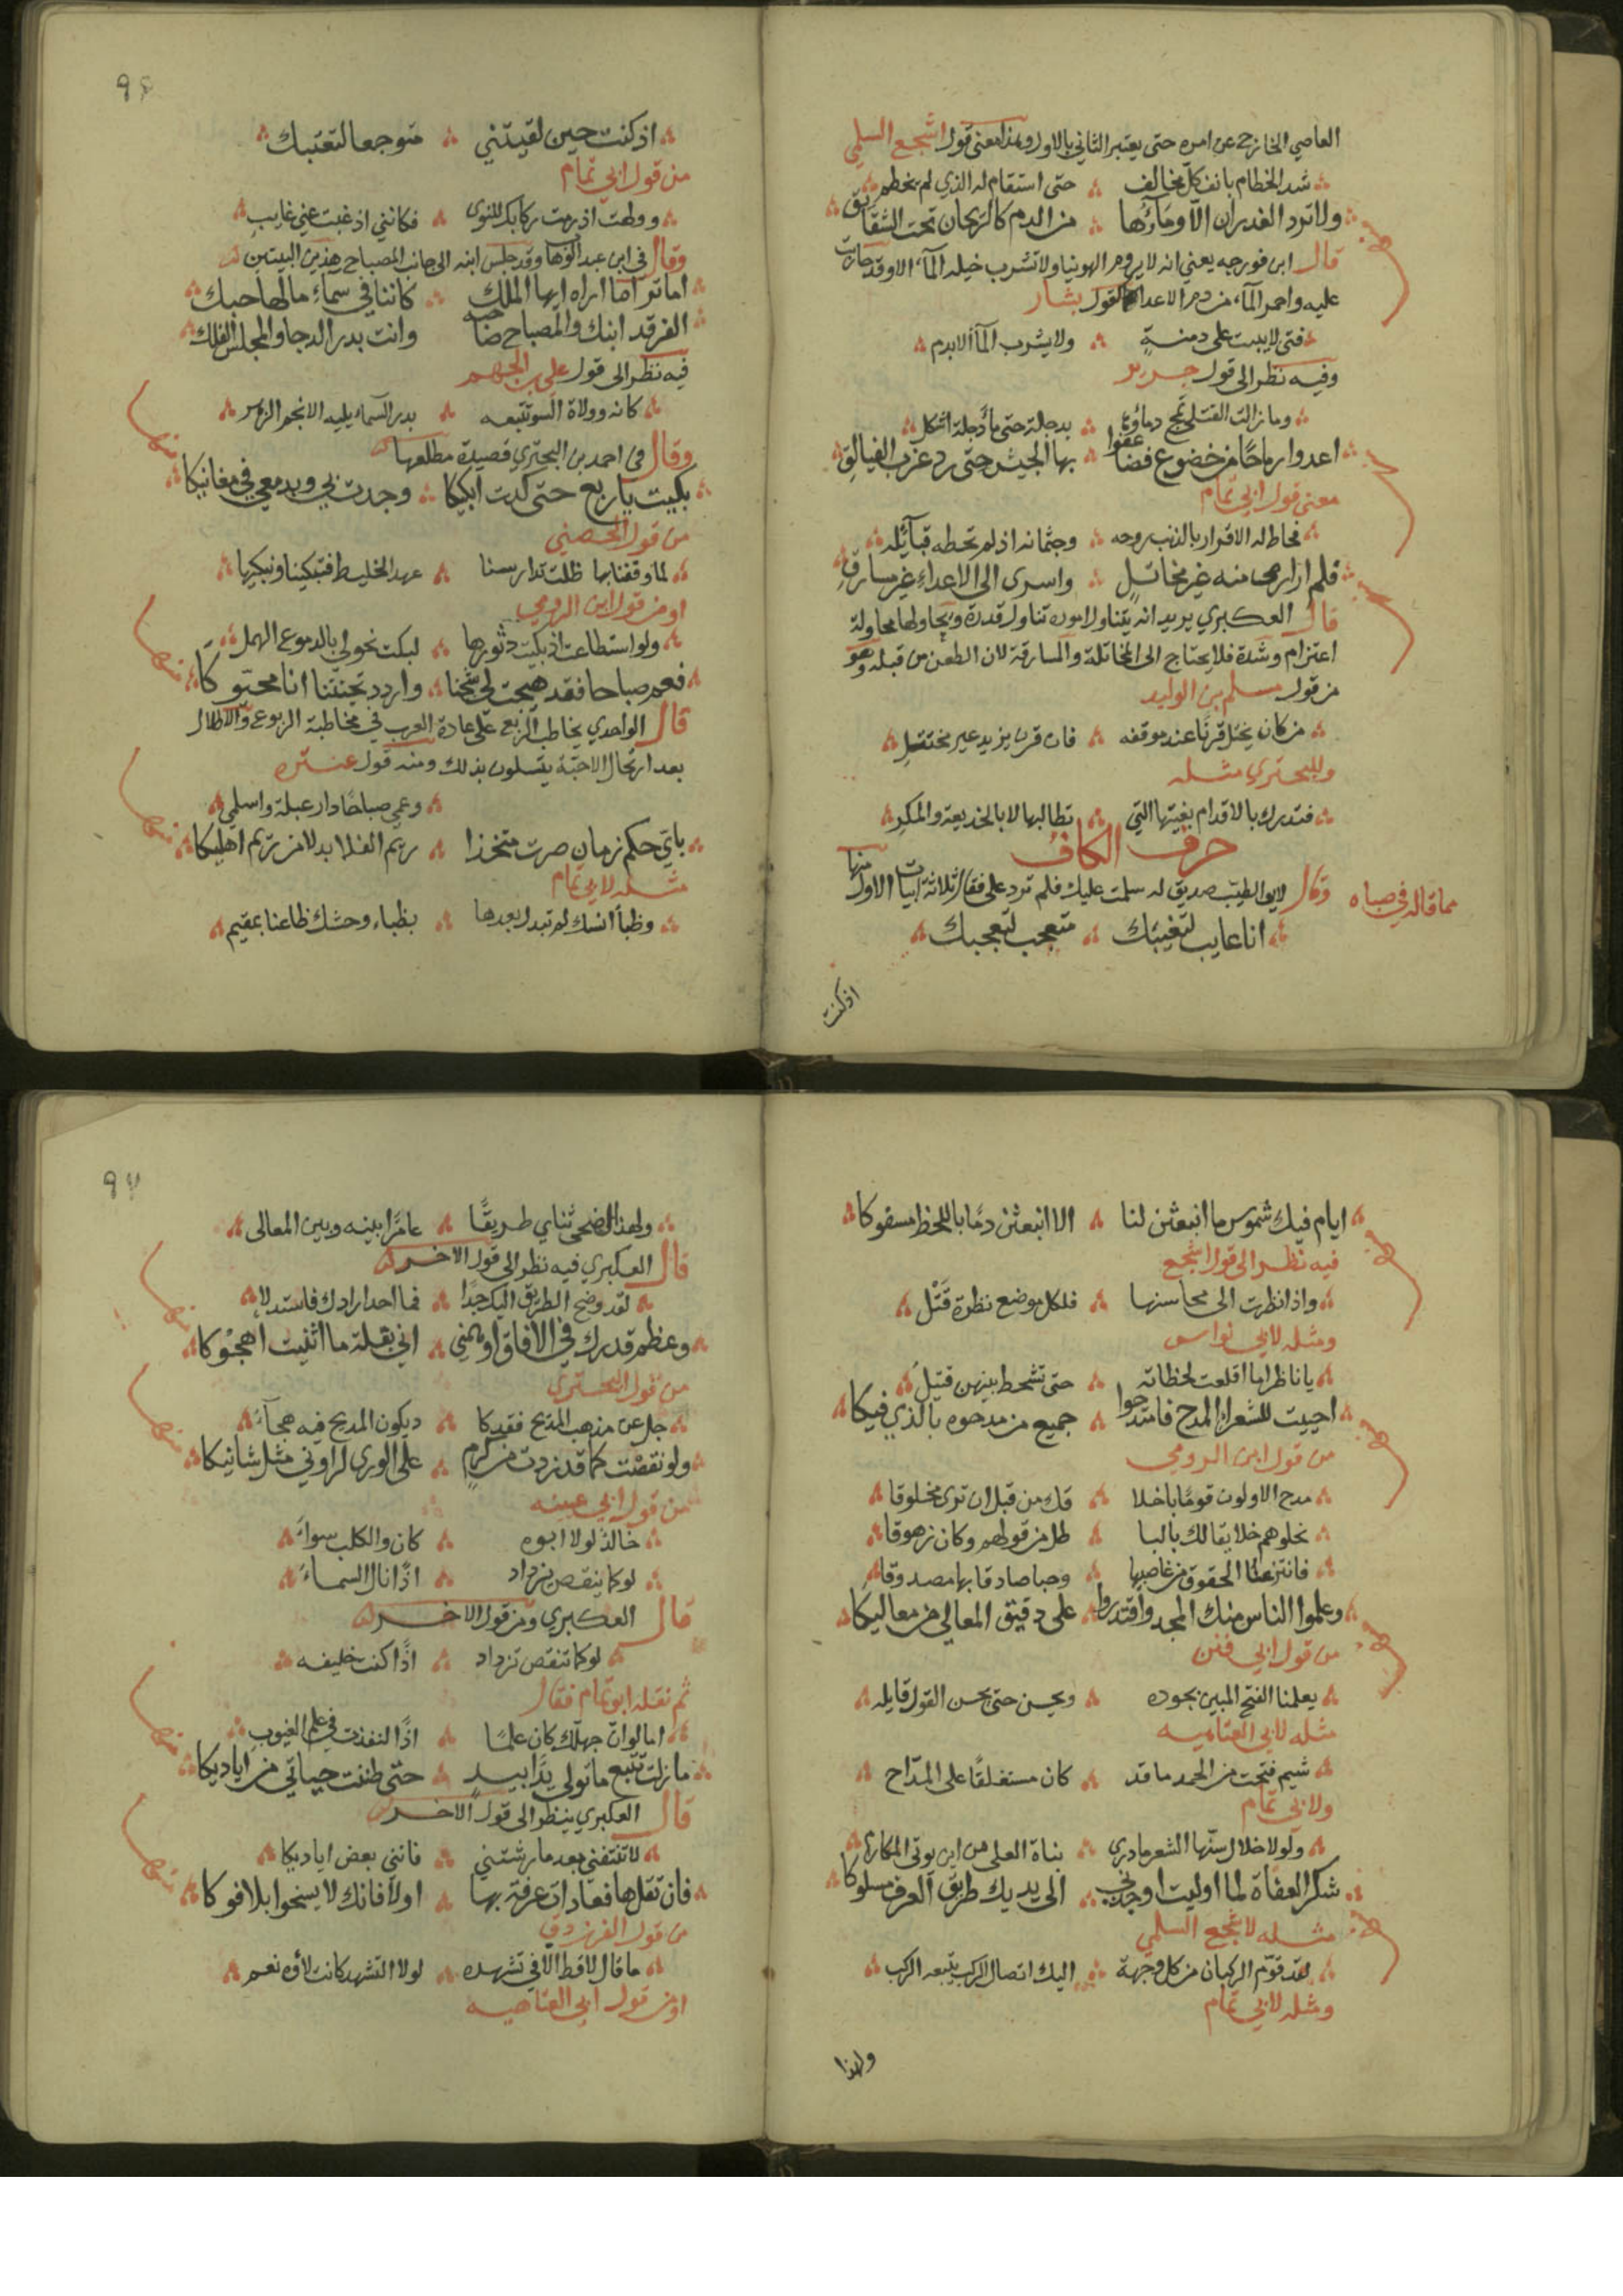 العاصي الخارج عن امره حتى يعتبر الثاني بالاول وهذا معنى قول اشجع السلمي
شد الخطام بانف كل مخالف حتى استقام له الذي لم يخطم
ولا ترد الغدران الا وماؤها من الدم كالريحان تحت الشقايق
قال ابن فورجه يعني انه لا يروم الهوينا ولا تشرب خيله المآء الا وقد حاربت
عليه واحمر المآء من دم الاعداء كقول بشار
فتى لا يبيت على دمنةٍ ولا يشرب المآ الا بدم
وفيه نظر الى قول جرير
وما زالت القتلى تمج دماؤها بدجلة حتى مآ دجلة اشكل
اعدوا رماحًا من خضوع فضا عفوا بها الجيش حتى رد غرب الفيالق
معنى قول ابي تمام
فحاط له الاقرار بالذنب روحه وجثمانه اذ لم تحطه قبآئله
فلم ار ارمى منه غير مخاتلٍ واسرى الى الاعداء غير مسارقِ
قال العكبري يريد انه يتناول اموره تناول قدرة ويحاولها محاولة
اعتزام وشدة فلا يحتاج الى المخاتلة والمسارقة لان الطعن من قبله وهو
من قول مسلم بن الوليد
من كان يختل قرنًا عند موقفه فان قرن يزيد غير مختتلِ
وللبحتري مثله
فتدرك بالاقدام بغيتها التي تطالبها لا بالخديعة والمكرِ
حرف الكاف
مما قاله في صباه
وقال لابي الطيب صديق له سلمت عليك فلم ترد علي فقال ثلاثة ابيات الاول منها
انا عايب لتغيبك متعجب لتعجبك
اذ كنت
٩٤
اذ كنت حين لقيتني متوجعا لتغيبك
من قول ابي تمام
ووطت اذ زمت ركابك للنوى فكانني اذ غبت عني غايب
وقال في ابن عبد الوها وقد جلس ابنه الى جانب المصباح هذين البيتين
اما ترا ما اراه ايها الملك كاننا في سمآء مالها حبك
الفرقد ابنك والمصباح صاحبه وانت بدر الدجا والمجلس الفلك
فيه نظر الى قول علي بن الجهم
كانه وولاة تتبعه بدر السمآء يليه الانجم الزهر
وقال في احمد بن البحتري قصيدة مطلعها
بكيت يا ربع حتى كدت ابكيكا وجدت بي وبدمعي في مغانيكا
من قول الحصني
لما وقفنا بها ظلت تدارسنا عهد الخليط فتبكينا ونبكيها
او من قول ابن الرومي
ولو استطاعت اذ بكيت دثورها لبكت نحولي بالدموع الهمل
فعم صباحا فقد هيجت لي شجنا واردد تحيتنا انا محيوكا
قال الواحدي يخاطب الربع على عادة العرب في مخاطبة الربوع والاطلال
بعد ارتحال الاحبة يتسلون بذلك ومنه قول عنتره
وعمي صباحًا دار عبلة واسلمي
باي حكم زمان صرت متخذا ريم الفلا بدلا من ريم اهليكا
مثله لابي تمام
وظبآ انسك لم تبدل بعدها بظباء وحشك ظاعنا بمقيم
ايام فيك شموس ما انبعثن لنا الا انبعثن دمًا باللحظ مسفوكا
فيه نظر الى قول اشجع
واذا نظرت الى محاسنها فلكل موضع نظرة قتل
ومثله لابي نواس
يا ناظرا ما اقلعت لحظاته حتى تشحط بينهن قتيل
احييت للشعرآء المدح فامتدحوا جميع من مدحوه بالذي فيكا
من قول ابن الرومي
مدح الاولون قومًا باخلا قك من قبل ان ترى مخلوقا
نحلوهم خلايقا لك بالبا طل من قولهم وكان زهوقا
فانتزعنا الحقوق من غاصبيها وحبا صادقا بها مصدوقا
وعلموا الناس منك المجد واقتدروا على دقيق المعالي من معاليكا
من قول ابي فنن
يعلمنا الفتح المبين بجوده ويحسن حتى يحسن القول قايله
مثله لابي العتاهيه
شيم فتحت من الحمد ما قد كان مستغلقًا على المدّاح
ولابي تمام
ولولا خلال سنّها الشعر ما درى بناة العلى من اين يوتى المكارم
شكر العفاة لما اوليت اوجد لي الى يديك طريق العرف مسلوكا
مثله لاشجع السلمي
لقد قوّم الركبان من كل وجهة اليك اتصال الركب يتبعه الركب
ومثله لابي تمام
ولهذا
٩٧
ولهذا اضحى ثناي طريقًا عامرًا بينه وبين المعالي
قال العكبري فيه نظر الى قول الاخر
لقد وضح الطريق اليك جدًا فما احد ارادك فاستدلا
وعظم قدرك في الافاق اوهمني اني بقلة ما اثنيت اهجوكا
من قول البحتري
جل عن مذهب المديح فقد كا د يكون المديح فيه هجآءً
ولو نقصت كما قد زدت من كرمٍ على الورى لراوني مثل شانيكا
من قول ابي عيينه
خالد لولا ابوه كان والكلب سوآء
لو كما ينقص يزداد اذًا نال السمآء
قال العكبري ومن قول الاخر
لو كما تنقص تزداد اذًا كنت خليفه
ثم نقله ابو تمام فقال
اما لو انّ جهلك كان علمًا اذًا لنفذت في علم الغيوب
ما زلت تتبع ما تولى يدًا بيدٍ حتى ظننت حياتي من اياديكا
قال العكبري ينظر الى قول الاخر
لا تنتفني بعد ما رشتني فانني بعض اياديكا
فان تقل ها فعادات عرفت بها اولا فانك لا يسخوا بلا فوكا
من قول الفرزدق
ما قال لا قط الا في تشهده لولا التشهد كانت لاؤه نعم
او من قول ابي العتاهيه